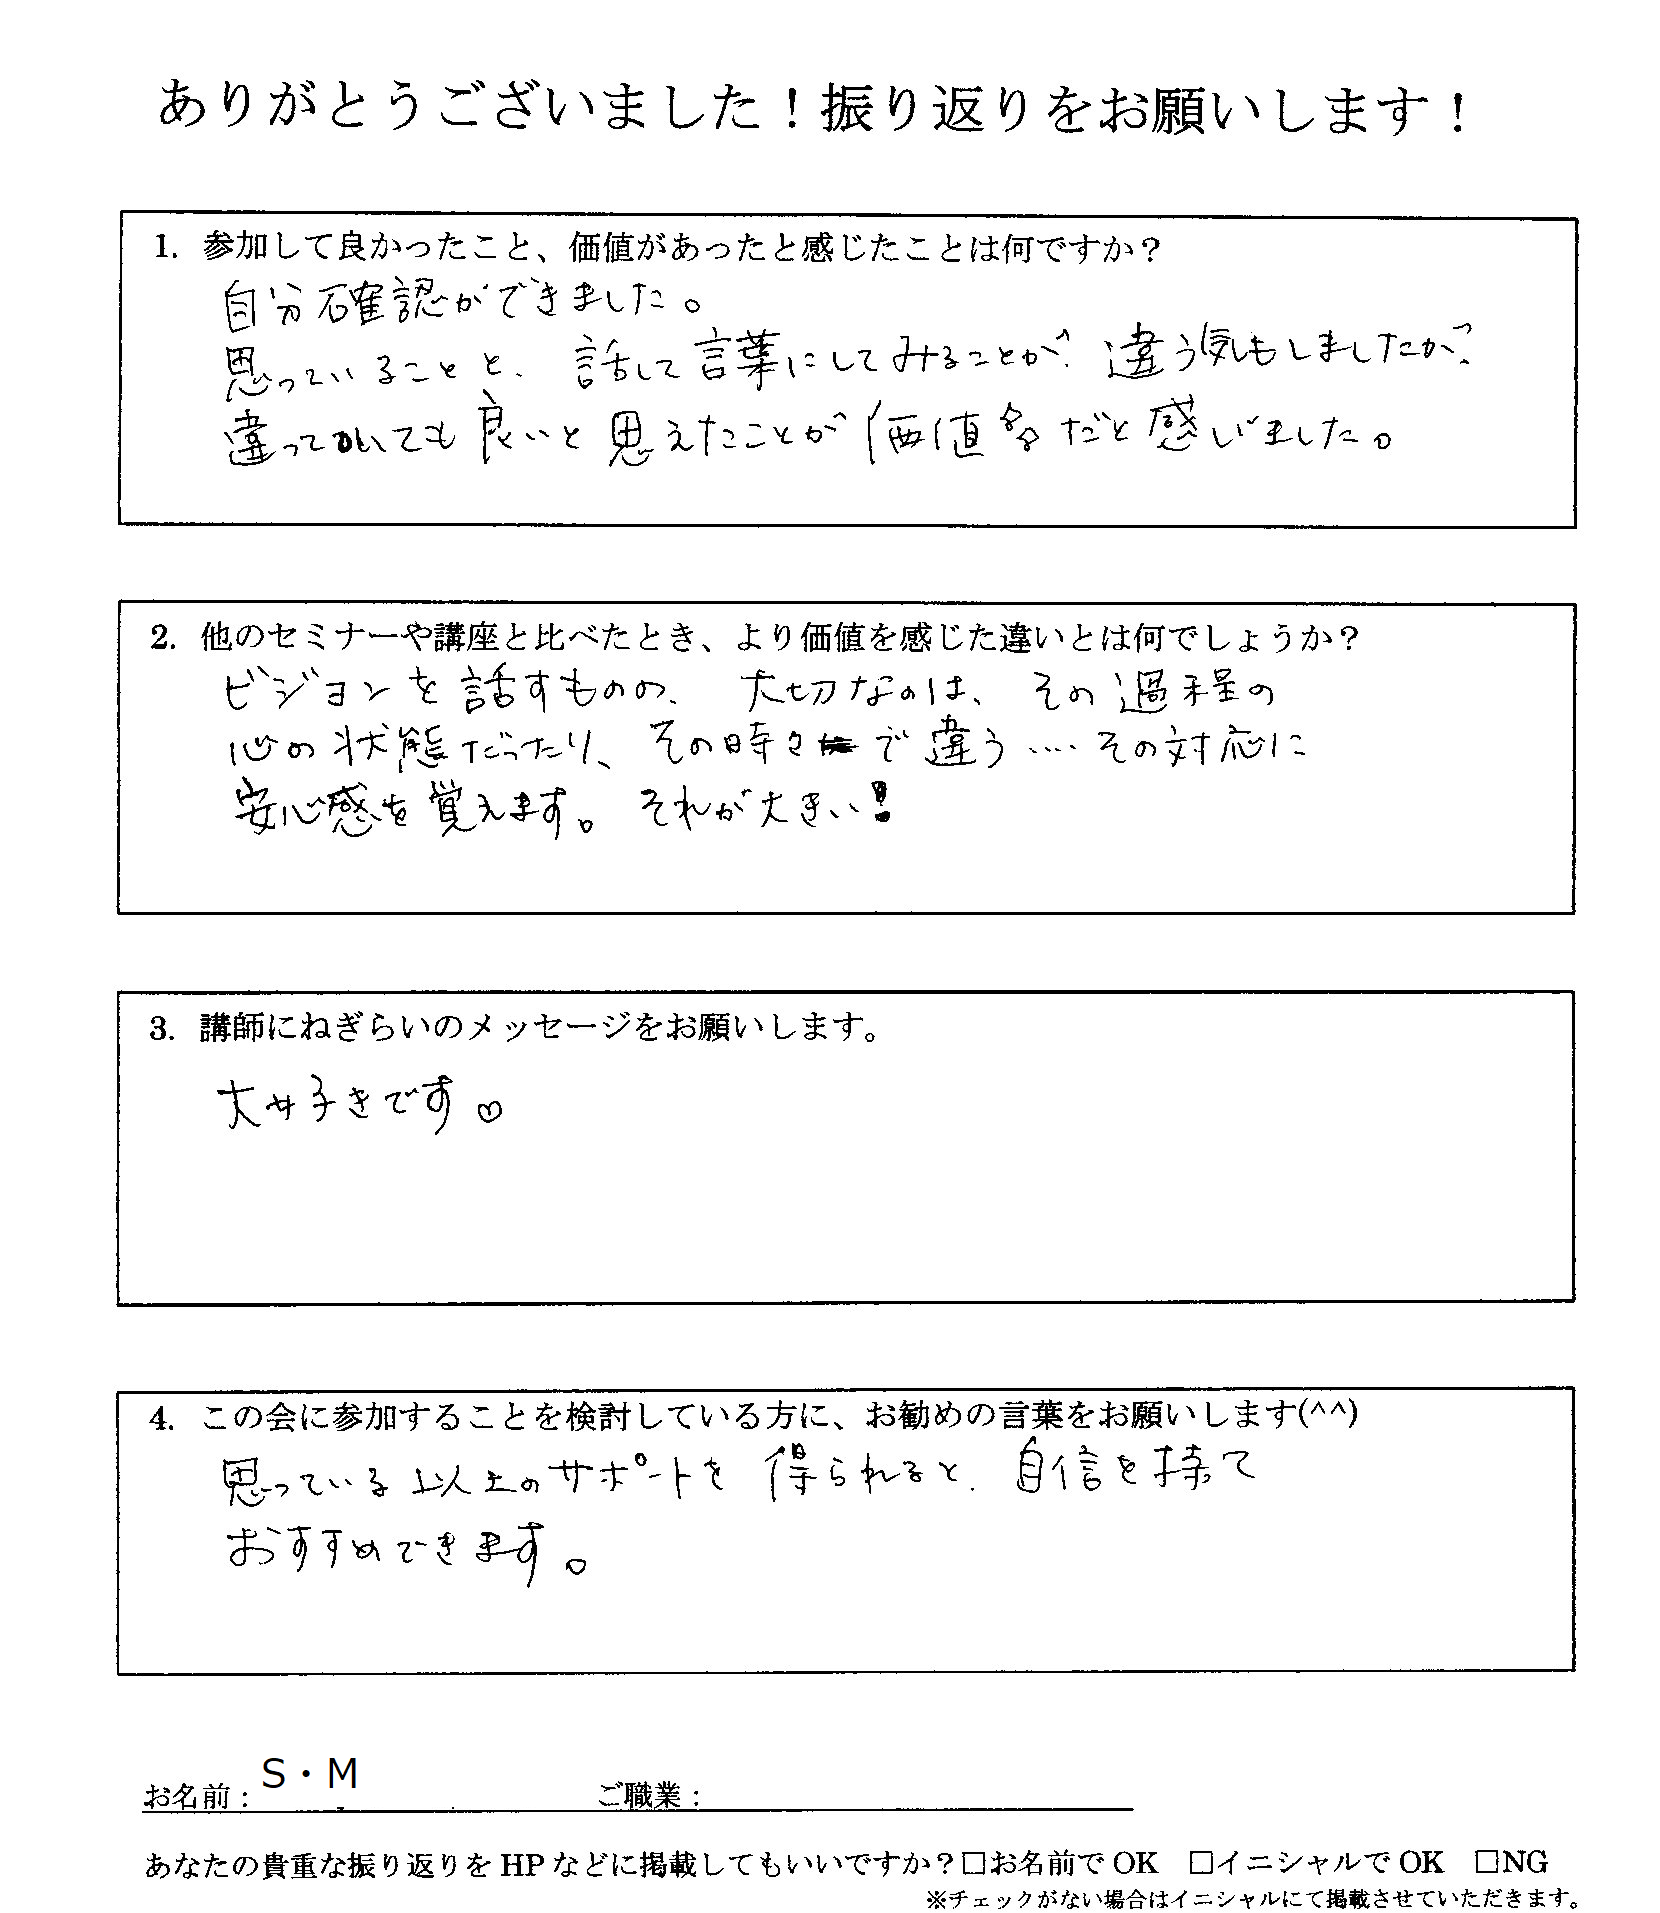 ありがとうございました！振り返りをお願いします！
1. 参加して良かったこと、価値があったと感じたことは何ですか？
自分確認ができました。
思っていることと、話して言葉にしてみることが、違う気もしましたが、
違っていても良いと思えたことが価値だと感じました。
2. 他のセミナーや講座と比べたとき、より価値を感じた違いとは何でしょうか？
ビジョンを話すものの、大切なのは、その過程の
心の状態だったり、その時々で違う‥‥その対応に
安心感を覚えます。それが大きい！
3. 講師にねぎらいのメッセージをお願いします。
大好きです♡
4. この会に参加することを検討している方に、お勧めの言葉をお願いします(^^)
思っている以上のサポートを得られると、自信を持って
おすすめできます。
お名前：S・M ご職業：
あなたの貴重な振り返りをHPなどに掲載してもいいですか？□お名前でOK □イニシャルでOK □NG
※チェックがない場合はイニシャルにて掲載させていただきます。